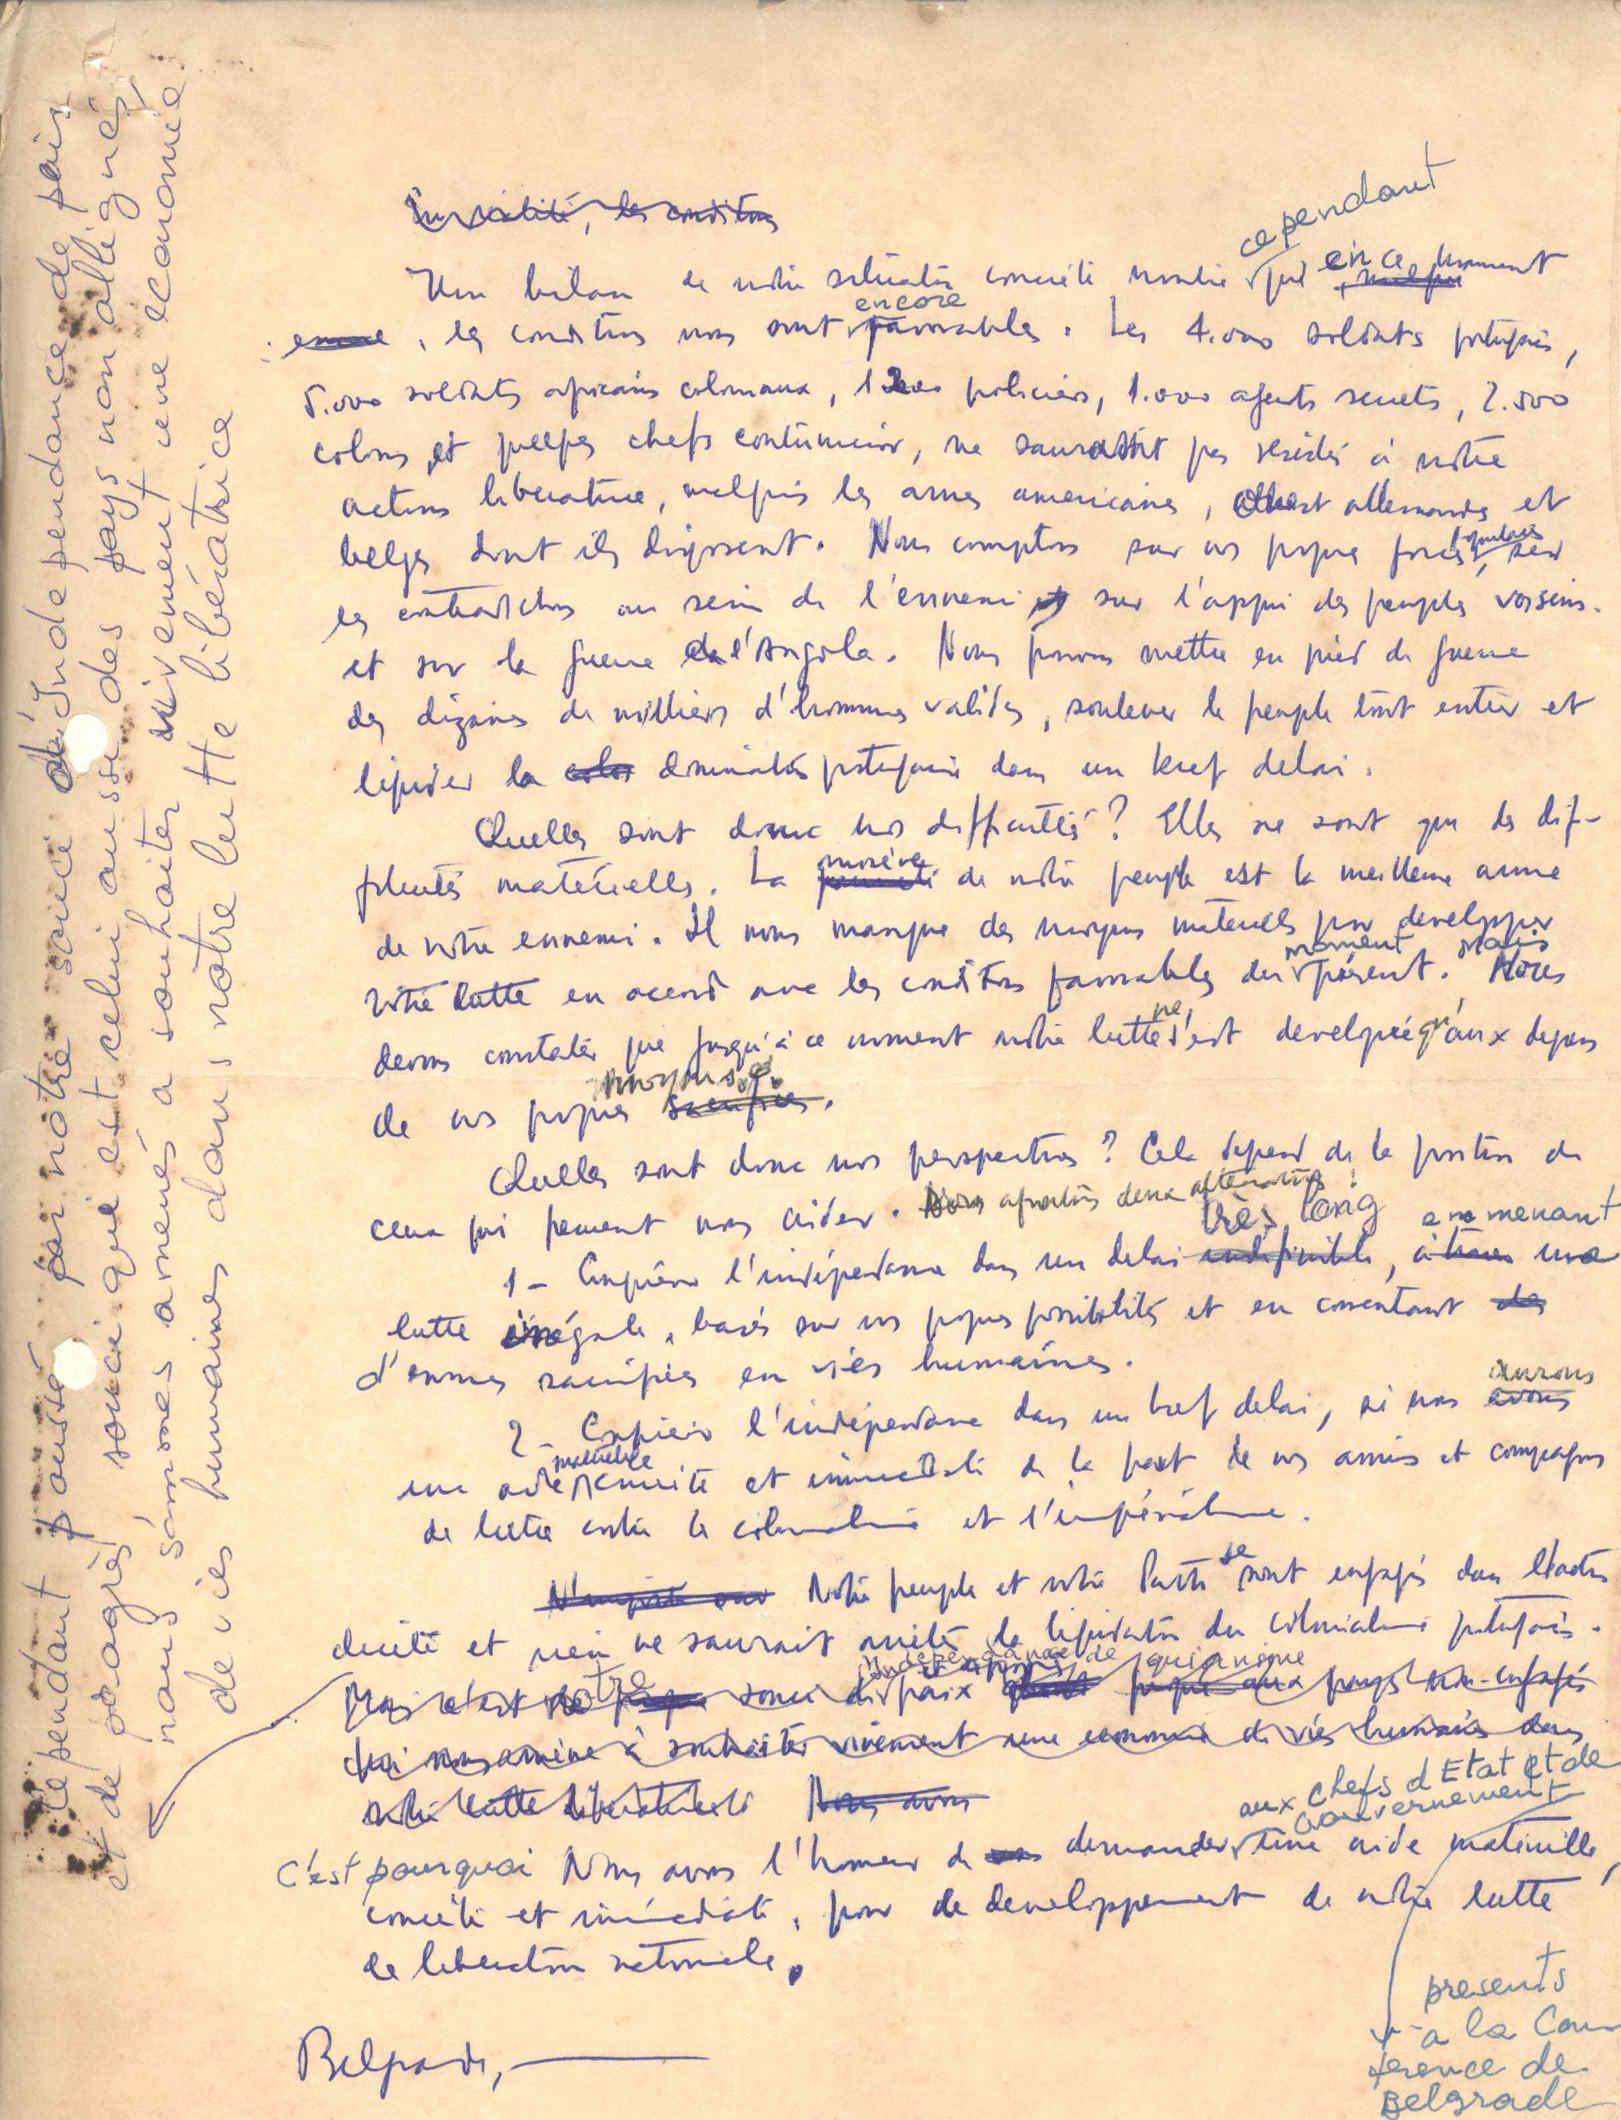 En réalité, les conditions
cependant
Un bilan de notre situation concrète montre que en ce moment
encore
encore, les conditions nous sont favorables. Les 4.000 soldats portugais,
5.000 soldats africains coloniaux, 1200 policiers, 1.000 agents secrets, 2.500
colons et quelques chefs coutumiers, ne sauraient pas résister à notre
action libératrice, malgré les armes américaines, ouest allemandes et
belges dont ils disposent. Nous comptons sur nos propres forces, sur
populaires
les contradictions au sein de l'ennemi et sur l'appui des peuples voisins.
et sur la guerre de l'Angola. Nous pouvons mettre en pied de guerre
des dizaines de milliers d'hommes valides, soulever le peuple tout entier et
liquider la colo domination portugaise dans un bref delai.
Quelles sont donc nos difficultés? Elles ne sont que des dif-
ficultés matérielles. La pauvreté de notre peuple est la meilleure arme
misère
de notre ennemi. Il nous manque des moyens materiels pour developper
notre lutte en accord avec les conditions favorables du présent. Nous
moment mais
devons constater que jusqu'à ce moment notre lutte s'est developpée qu'aux depens
ne
de nos propres sacrifices.
moyens
Quelles sont donc nos perspectives? Cela depend de la position de
ceux qui peuvent nous aider. Nous avons deux alternatives:
très long en menant
1 - Conquérir l'indépendance dans un delai indefinible, à travers une
lutte inégale, basée sur nos propres possibilités et en consentant des
d'enormes sacrifices en vies humaines.
aurons
2 - Conquérir l'indépendance dans un bref delai, si nous avons
matérielle
une aide concrète et immediate de la part de nos amis et compagnons
de lutte contre le colonialisme et l'impérialisme.
N'importe Notre peuple et notre Parti se sont engagés dans l'action
directe et rien ne saurait arrêter la liquidation du colonialisme portugais.
independance de
et de progrès, qui anime
Mais c'est notre propre souci de paix propre aux pays non-engagés
qui nous amène à souhaiter vivement une economie de vies humaines dans
notre lutte libératrice Nous avons
aux chefs d'Etat et de
Gouvernement
C'est pourquoi Nous avons l'honneur de demander une aide materielle,
concrète et immédiate, pour le developpement de notre lutte
de liberation nationale.
presents
à la Con
ference de
Belgrade
Belgrade,
Cependant poussé par notre souci d'Independance, de paix
et de progrès, souci qui est celui aussi des pays non alignés,
nous sommes amenés à souhaiter vivement une économie
de vies humaines dans notre lutte libératrice